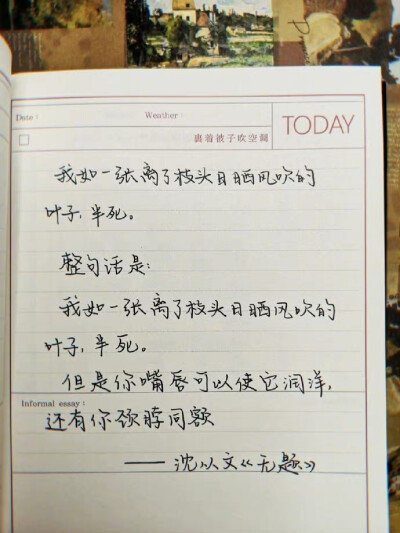 Date：
Weather：
裹着被子吹空调
TODAY
我如一张离了枝头日晒风吹的
叶子，半死。
整句话是：
我如一张离了枝头日晒风吹的
叶子，半死。
但是你嘴唇可以使它润泽，
Informal essay：
还有你颈脖同额
——沈从文《无题》